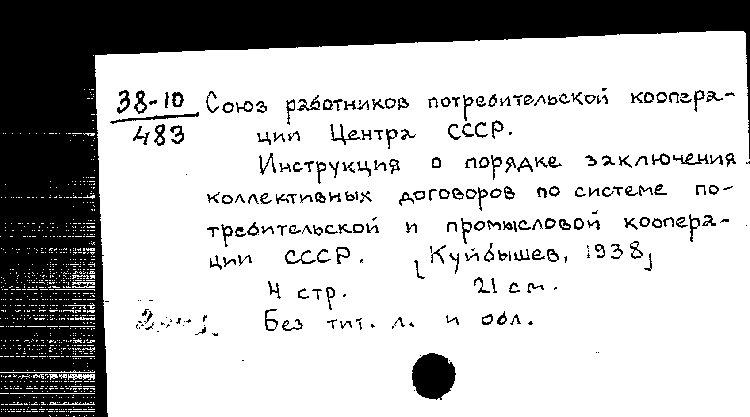 38-10 Союз работников потребительской коопера-
483 ции Центра СССР.
Инструкция о порядке заключения
коллективных договоров по системе по-
требительской и промысловой коопера-
ции СССР. [Куйбышев, 1938]
4 стр. 21 см.
Без тит. л. и обл.